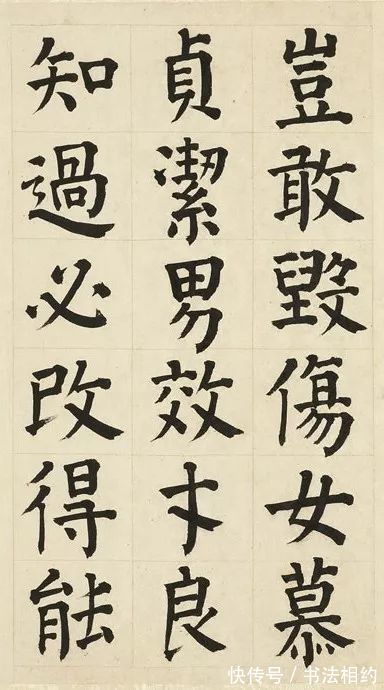 豈敢毀傷女慕
貞潔男效才良
知過必改得能
快传号/书法相约